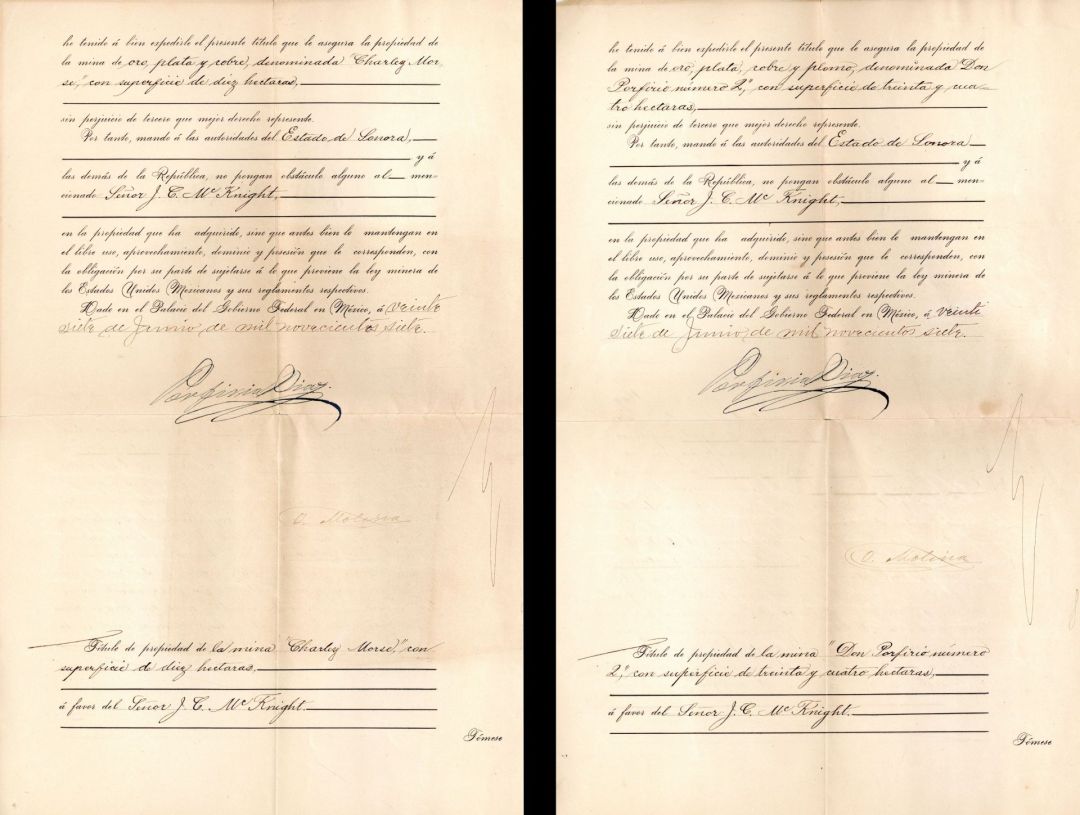 he tenido á bien expedirle el presente título que le asegura la propiedad de
la mina de oro, plata y cobre, denominada "Charley Mor
se," con superficie de diez hectaras,
sin perjuicio de tercero que mejor derecho represente.
Por tanto, mando á las autoridades del Estado de Sonora,
y á
las demás de la República, no pongan obstáculo alguno al men-
cionado Señor J. C. Mc Knight,
en la propiedad que ha adquirido, sino que antes bien lo mantengan en
el libre uso, aprovechamiento, dominio y posesión que le corresponden, con
la obligación por su parte de sujetarse á lo que previene la ley minera de
los Estados Unidos Mexicanos y sus reglamentos respectivos.
Dado en el Palacio del Gobierno Federal en México, á veinte
siete de Junio de mil novecientos siete.
Porfirio Diaz.
O. Molina
Título de propiedad de la mina "Charley Morse," con
superficie de diez hectaras,
á favor del Señor J. C. Mc Knight.
Tómese
he tenido á bien expedirle el presente título que le asegura la propiedad de
la mina de oro, plata, cobre y plomo, denominada "Don
Porfirio número 2," con superficie de treinta y cua-
tro hectaras,
sin perjuicio de tercero que mejor derecho represente.
Por tanto, mando á las autoridades del Estado de Sonora
y á
las demás de la República, no pongan obstáculo alguno al men-
cionado Señor J. C. Mc Knight,
en la propiedad que ha adquirido, sino que antes bien lo mantengan en
el libre uso, aprovechamiento, dominio y posesión que le corresponden, con
la obligación por su parte de sujetarse á lo que previene la ley minera de
los Estados Unidos Mexicanos y sus reglamentos respectivos.
Dado en el Palacio del Gobierno Federal en México, á veinti
siete de Junio de mil novecientos siete.
Porfirio Diaz.
O. Molina
Título de propiedad de la mina "Don Porfirio número
2," con superficie de treinta y cuatro hectaras,
á favor del Señor J. C. Mc Knight.
Tómese